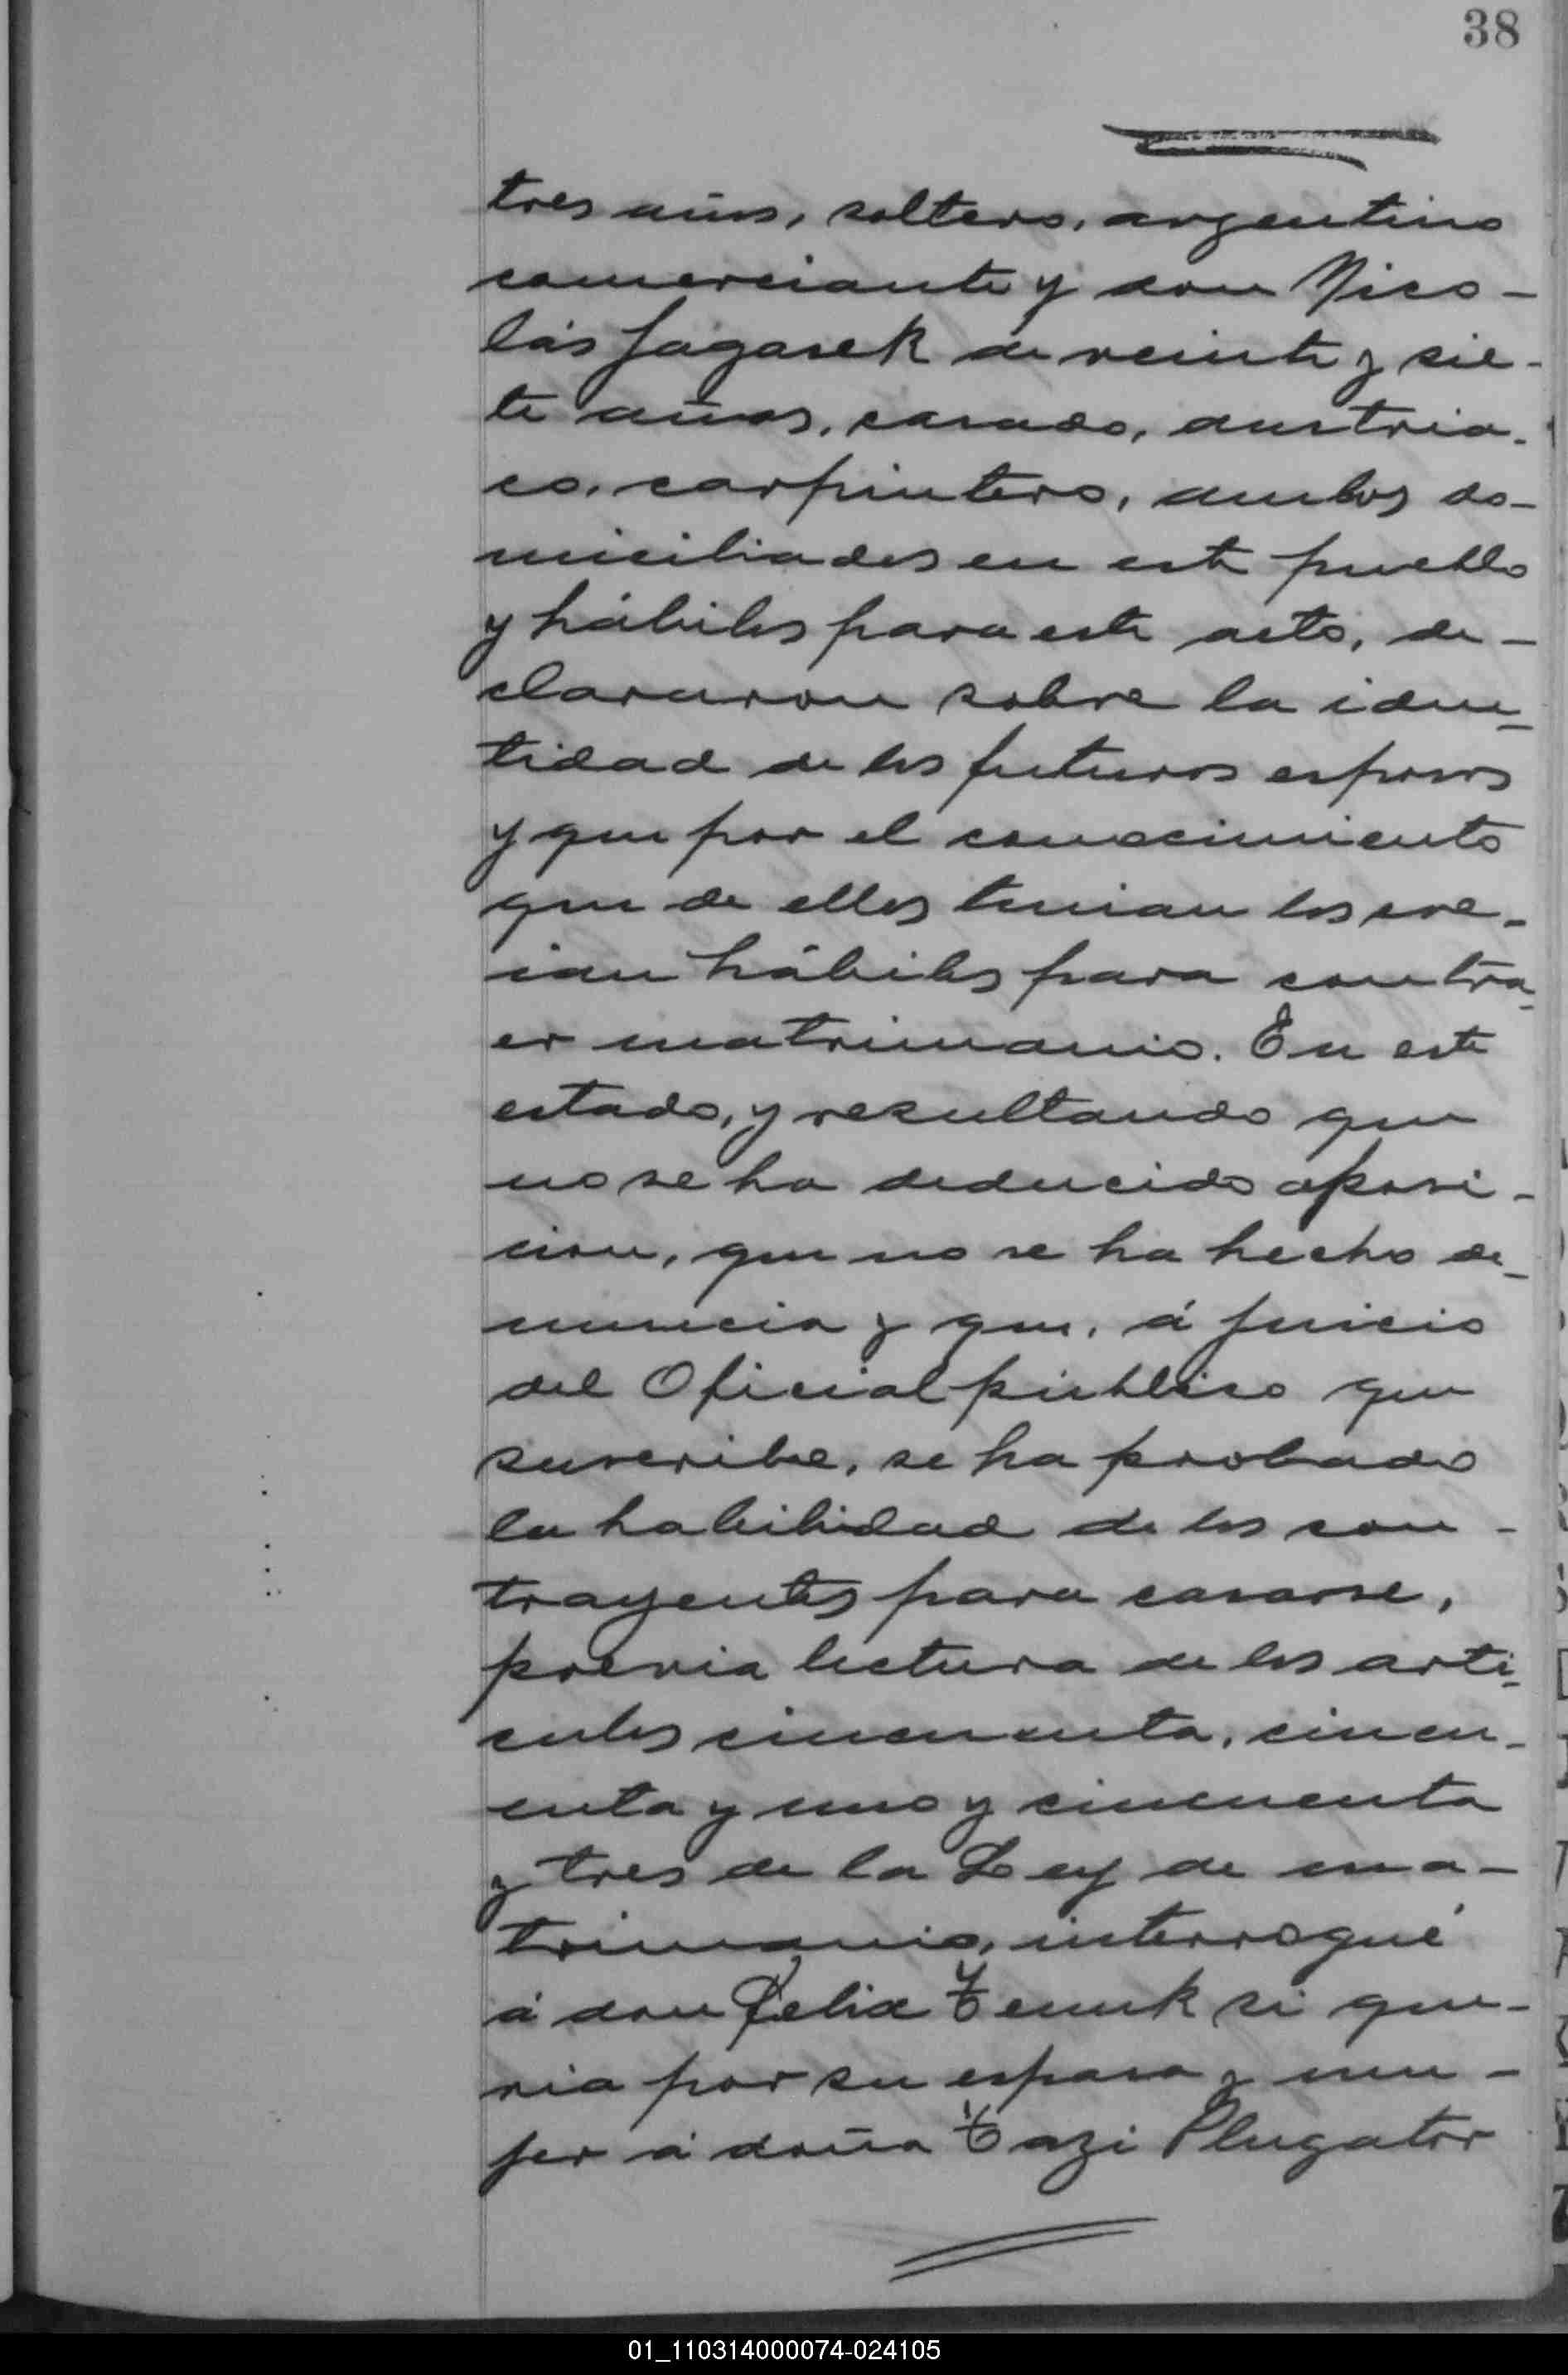 38
tres años, soltero, argentino
comerciante y don Nico-
lás Jagasek de veinte y sie-
te años, casado, austria-
co, carpintero, ambos do-
miciliados en este pueblo
y hábiles para este acto, de-
clararon sobre la iden-
tidad de los futuros esposos
y que por el conocimiento
que de ellos tenian los cre-
ian hábiles para contra-
er matrimonio. En este
estado, y resultando que
no se ha deducido oposi-
cion, que no se ha hecho de-
nuncia y que, á juicio
del Oficial público que
suscribe, se ha probado
la habilidad de los con-
trayentes para casarse,
previa lectura de los artí-
culos cincuenta, cincu-
enta y uno y cincuenta
y tres de la Ley de ma-
trimonio, interrogué
á don Felix si que-
ria por su esposa y mu-
jer á doña Plugator
01_110314000074-024105